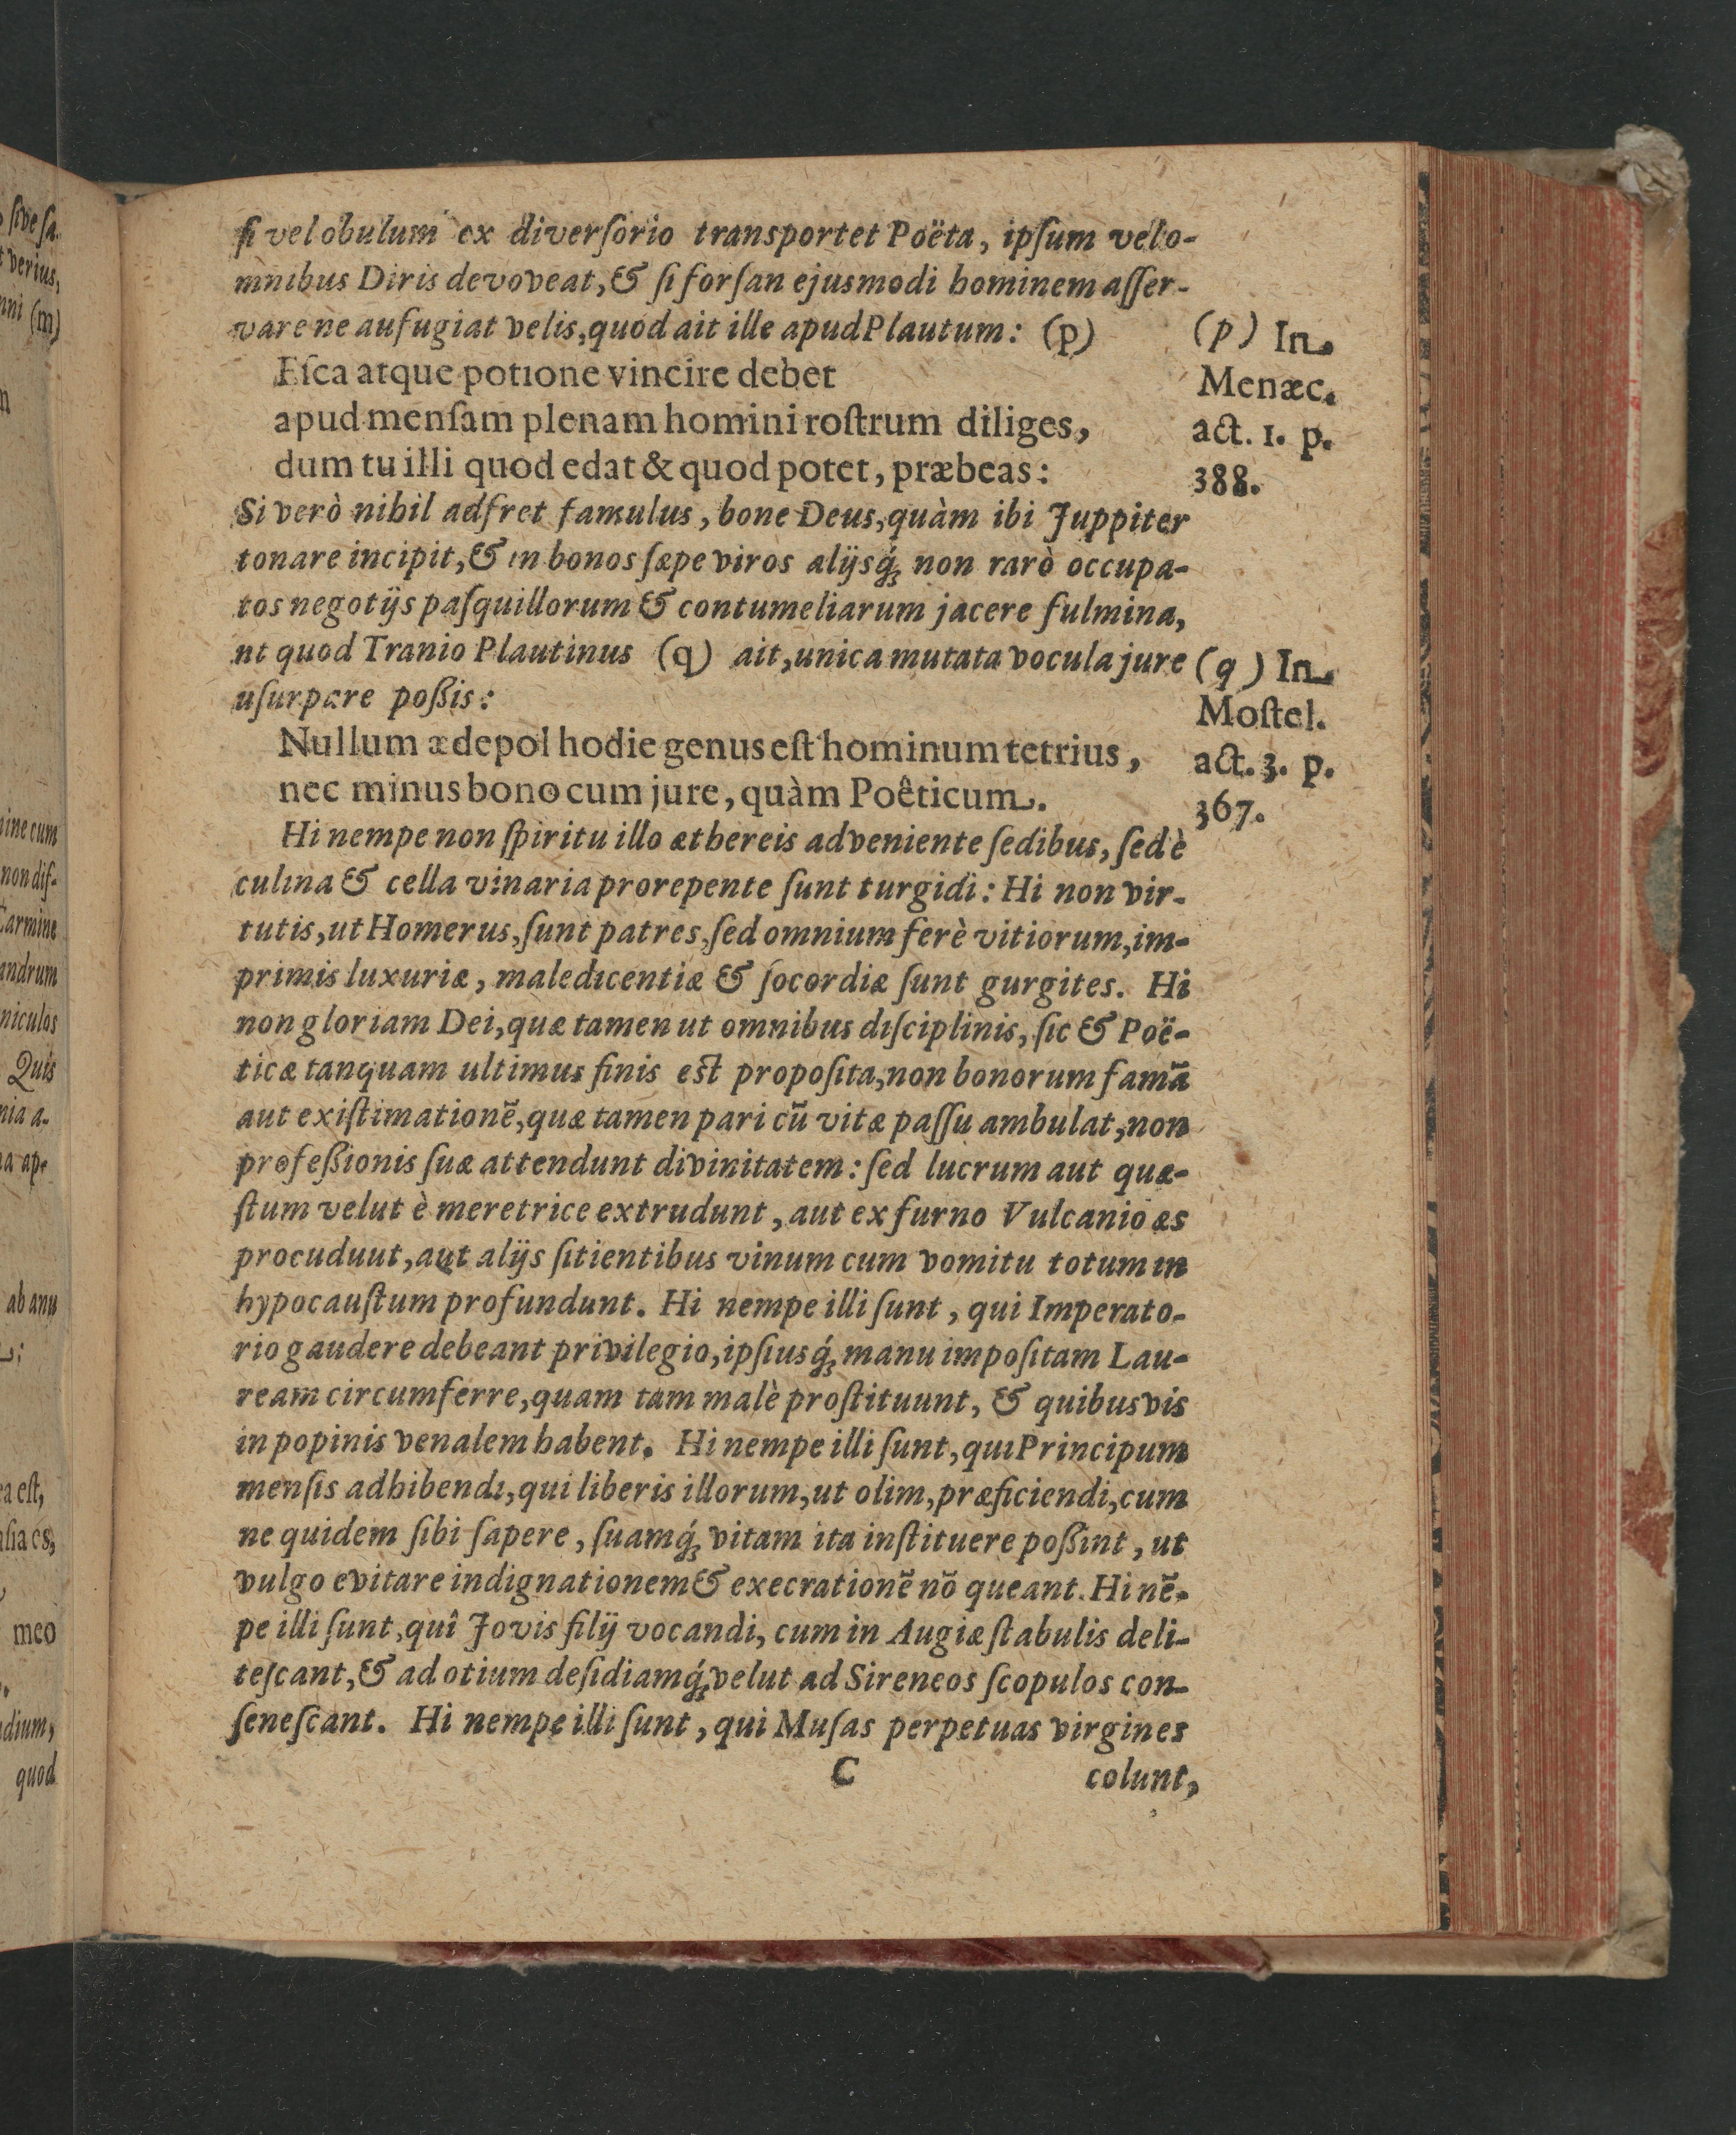 ſi vel obulum ex diverſorio transportet Poëta, ipſum vel o-
mnibus Diris devoveat, & ſi forſan ejusmodi hominem aſſer-
vare ne aufugiat velis, quod ait ille apud Plautum: (p)
(p) In
Menæc.
act. 1. p.
388.
Eſca atque potione vincire debet
apud menſam plenam homini roſtrum diliges,
dum tu illi quod edat & quod potet, præbeas:
Si verò nihil adfret famulus, bone Deus, quàm ibi Juppiter
tonare incipit, & in bonos ſæpe viros alijsq́ꝫ non rarò occupa-
tos negotijs paſquillorum & contumeliarum jacere fulmina,
nt quod Tranio Plautinus (q) ait, unica mutata vocula jure
uſurpare poßis:
(q) In
Moſtel.
act. 3. p.
367.
Nullum ædepol hodie genus eſt hominum tetrius,
nec minus bono cum jure, quàm Poêticum.
Hi nempe non ſpiritu illo æthereis adveniente ſedibus, ſed è
culina & cella vinaria prorepente ſunt turgidi: Hi non vir-
tutis, ut Homerus, ſunt patres, ſed omnium ferè vitiorum, im-
primis luxuriæ, maledicentiæ & ſocordiæ ſunt gurgites. Hi
non gloriam Dei, quæ tamen ut omnibus diſciplinis, ſic & Poë-
ticæ tanquam ultimus finis eſt propoſita, non bonorum famā
aut exiſtimationē, quæ tamen pari cū vitæ paſſu ambulat, non
profeßionis ſuæ attendunt divinitatem: ſed lucrum aut quæ-
ſtum velut è meretrice extrudunt, aut ex furno Vulcanio æs
procuduut, aut alijs ſitientibus vinum cum vomitu totum in
hypocauſtum profundunt. Hi nempe illi ſunt, qui Imperato-
rio gaudere debeant privilegio, ipſiusq́ꝫ manu impoſitam Lau-
ream circumferre, quam tam malè proſtituunt, & quibusvis
in popinis venalem habent. Hi nempe illi ſunt, qui Principum
menſis adhibendi, qui liberis illorum, ut olim, præficiendi, cum
ne quidem ſibi ſapere, ſuamq́ꝫ vitam ita inſtituere poßint, ut
vulgo evitare indignationem & execrationē nō queant. Hi nē-
pe illi ſunt, quî Jovis filij vocandi, cum in Augiæ ſtabulis deli-
teſcant, & ad otium deſidiamq́ꝫ velut ad Sireneos ſcopulos con-
ſeneſcant. Hi nempe illi ſunt, qui Muſas perpetuas virgines
C colunt,